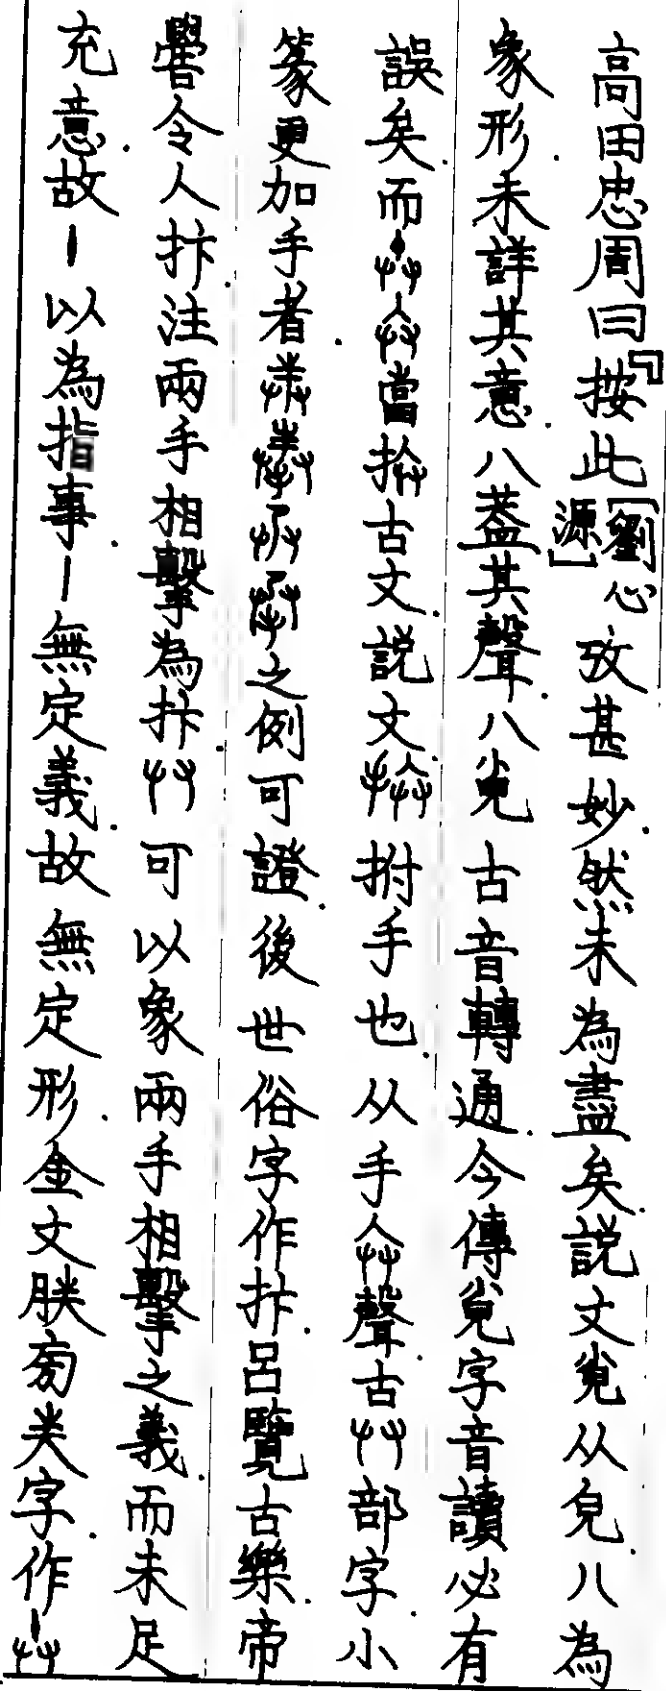 高田忠周曰『按此[劉心源]攷甚妙.然未為盡矣.説文㒸从皃.八為
象形.未詳其意.八蓋其聲.八 古音轉通.今傳 字音讀必有
誤矣.而 當 古文.説文 拊手也.从手 聲.古 部字.小
篆更加手者. 之例可證.後世俗字作抃.呂覽古樂.帝
嚳令人抃.注兩手相擊為抃. 可以象兩手相擊之義.而未足
充意.故丨以為指事.丨無定義.故無定形.金文朕 类字.作